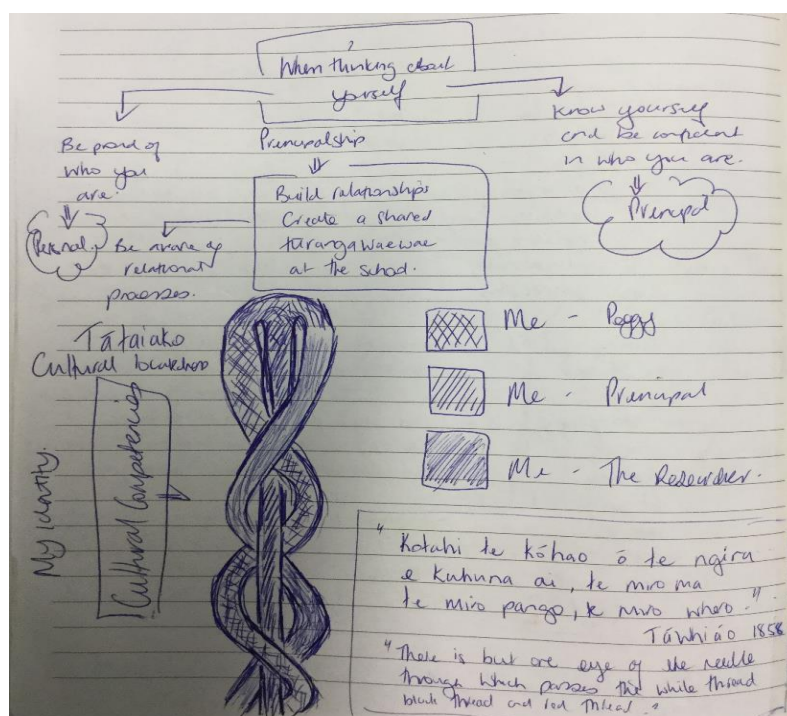 When thinking about
yourself
Be proud of
who you
are.
Personal
Principalship
Build relationships
Create a shared
turangawaewae
at the school.
Be aware of
relational
processes.
Know yourself
and be confident
in who you are.
Principal
Tātaiako
Cultural
Cultural Competencies
My identity.
Me - Peggy
Me - Principal
Me - The Researcher.
"Kotahi te kōhao ō te ngira
e kuhuna ai, te miro ma
te miro pango, te miro whero."
Tāwhiáo 1858
"There is but one eye of the needle
through which passes the white thread
black thread and red thread."